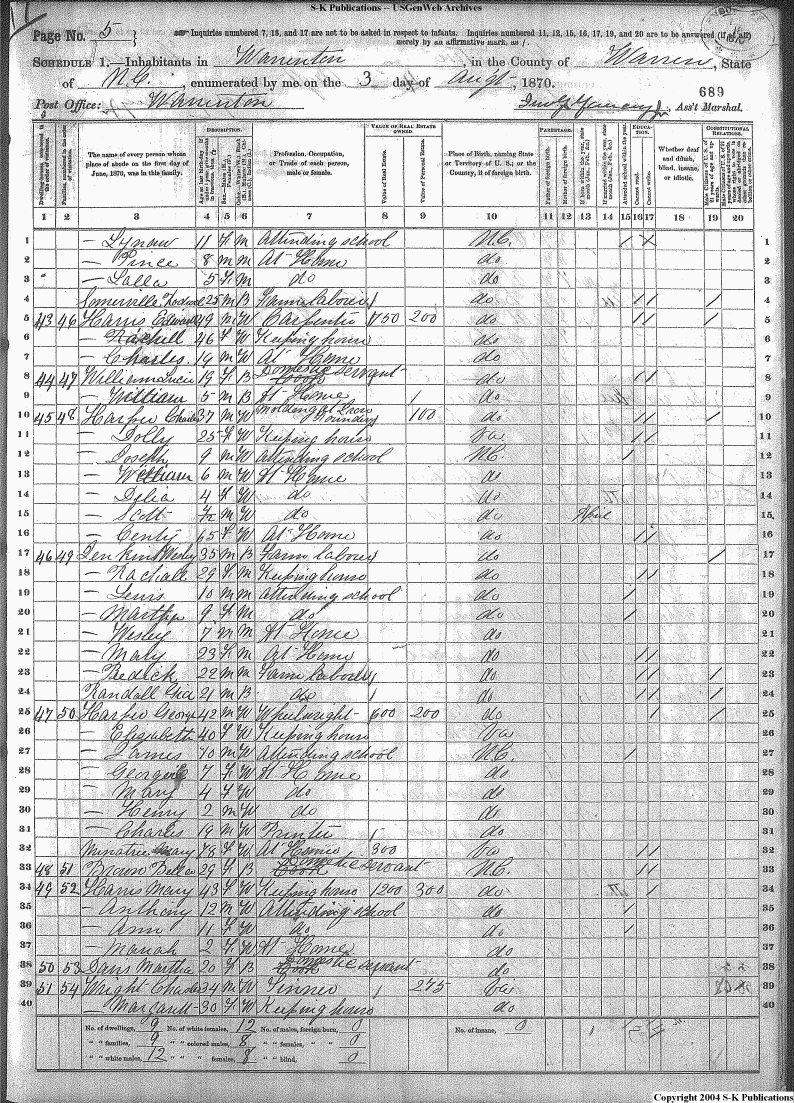 S-K Publications -- USGenWeb Archives
Page No. 5
Inquiries numbered 7, 16, and 17 are not to be asked in respect to infants. Inquiries numbered 11, 12, 15, 16, 17, 19, and 20 are to be answered (if at all) merely by an affirmative mark, as /.
SCHEDULE 1.—Inhabitants in Warrenton, in the County of Warren, State
of N.C., enumerated by me on the 3 day of Augt, 1870.
689
Post Office: Warrenton
Ass't Marshal.
DESCRIPTION. VALUE OF REAL ESTATE OWNED. PARENTAGE. EDUCATION. CONSTITUTIONAL RELATIONS.
The name of every person whose place of abode on the first day of June, 1870, was in this family.
Profession, Occupation, or Trade of each person, male or female.
Value of Real Estate.
Value of Personal Estate.
Place of Birth, naming State or Territory of U. S.; or the Country, if of foreign birth.
Father of foreign birth.
Mother of foreign birth.
Whether deaf and dumb, blind, insane, or idiotic.
1 2 3 4 5 6 7 8 9 10 11 12 13 14 15 16 17 18 19 20
1 — 11 F M Attending school N.C. / 1
2 — Prince 8 M M At Home do 2
3 — Lalla 5 F M do do 3
4 Somerville 25 M B Farm laborer do / / / 4
5 43 46 Harris Edward 49 M W Carpenter 750 200 do / / / 5
6 — Rachell 46 F W Keeping house do 6
7 — Charles 19 M W At Home do 7
8 44 47 Williams Lucie 19 F B Domestic servant do / / 8
9 — William 5 M B At Home do 9
10 45 48 Harper Charles 37 M W 100 do / / / 10
11 — Dolly 25 F W Keeping house Va. / / 11
12 — Joseph 9 M W Attending school N.C. / 12
13 — William 6 M W At Home do 13
14 — Delia 4 F W do do 14
15 — Scott M W do do April 15
16 — 65 F W At Home do / / 16
17 46 49 Wesley 35 M B Farm laborer do / 17
18 — Rachall 29 F M Keeping house do / / 18
19 — Lewis 10 M M Attending school do / 19
20 — Martha 9 F M do do / 20
21 — Wesley 7 M M At Home do 21
22 — Maly 23 F M At Home do / / 22
23 — Redick 22 M M Farm laborer do / / / 23
24 Randall 21 M B do do / / / 24
25 47 50 Harper George 42 M W Wheelwright 600 200 do / / 25
26 — Elizabeth 40 F W Keeping house Va 26
27 — James 10 M W Attending school N.C. / 27
28 — Georgie 7 F W At Home do 28
29 — Mary 4 F W do do 29
30 — Henry 2 M W do do 30
31 — Charles 19 M W Printer do 31
32 Mary 78 F W At Home 300 Va / / 32
33 48 51 Brown 29 F B Domestic servant N.C. / / 33
34 49 52 Harris Mary 43 F W Keeping house 1200 300 do / 34
35 — Anthony 12 M W Attending school do / 35
36 — Ann 11 F W do do / 36
37 — Mariah 2 F W At Home do 37
38 50 53 Davis Martha 20 F B Domestic servant do 38
39 51 54 Wright Charles 34 M W Tinner 275 Va 39
40 — Margarett 30 F W Keeping house do 40
No. of dwellings, 9 No. of white females, 12 No. of males, foreign born, 0 No. of insane, 0
" " families, 9 " " colored males, 8 " " females, " " 0
" " white males, 12 " " " females, 8 " " blind, 0
Copyright 2004 S-K Publications